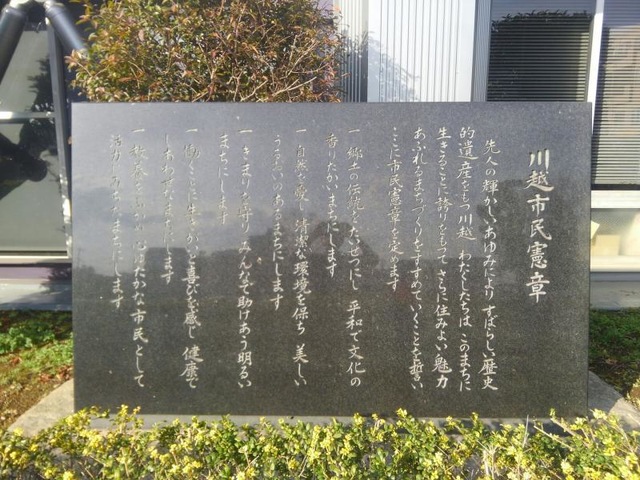 川越市民憲章
先人の輝かしいあゆみによりすばらしい歴史
的遺産をもつ川越 わたくしたちは このまちに
生きることに誇りをもって さらに住みよい魅力
あふれるまちづくりをすすめていくことを誓い
ここに市民憲章を定めます
一 郷土の伝統をたいせつにし 平和で文化の
香りたかいまちにします
一 自然を愛し 清潔な環境を保ち 美しい
うるおいのあるまちにします
一 きまりを守り みんなで助けあう明るい
まちにします
一 働くことに生きがいと喜びを感じ 健康で
しあわせなまちにします
一 教養を ゆたかな市民として
活力 まちにします